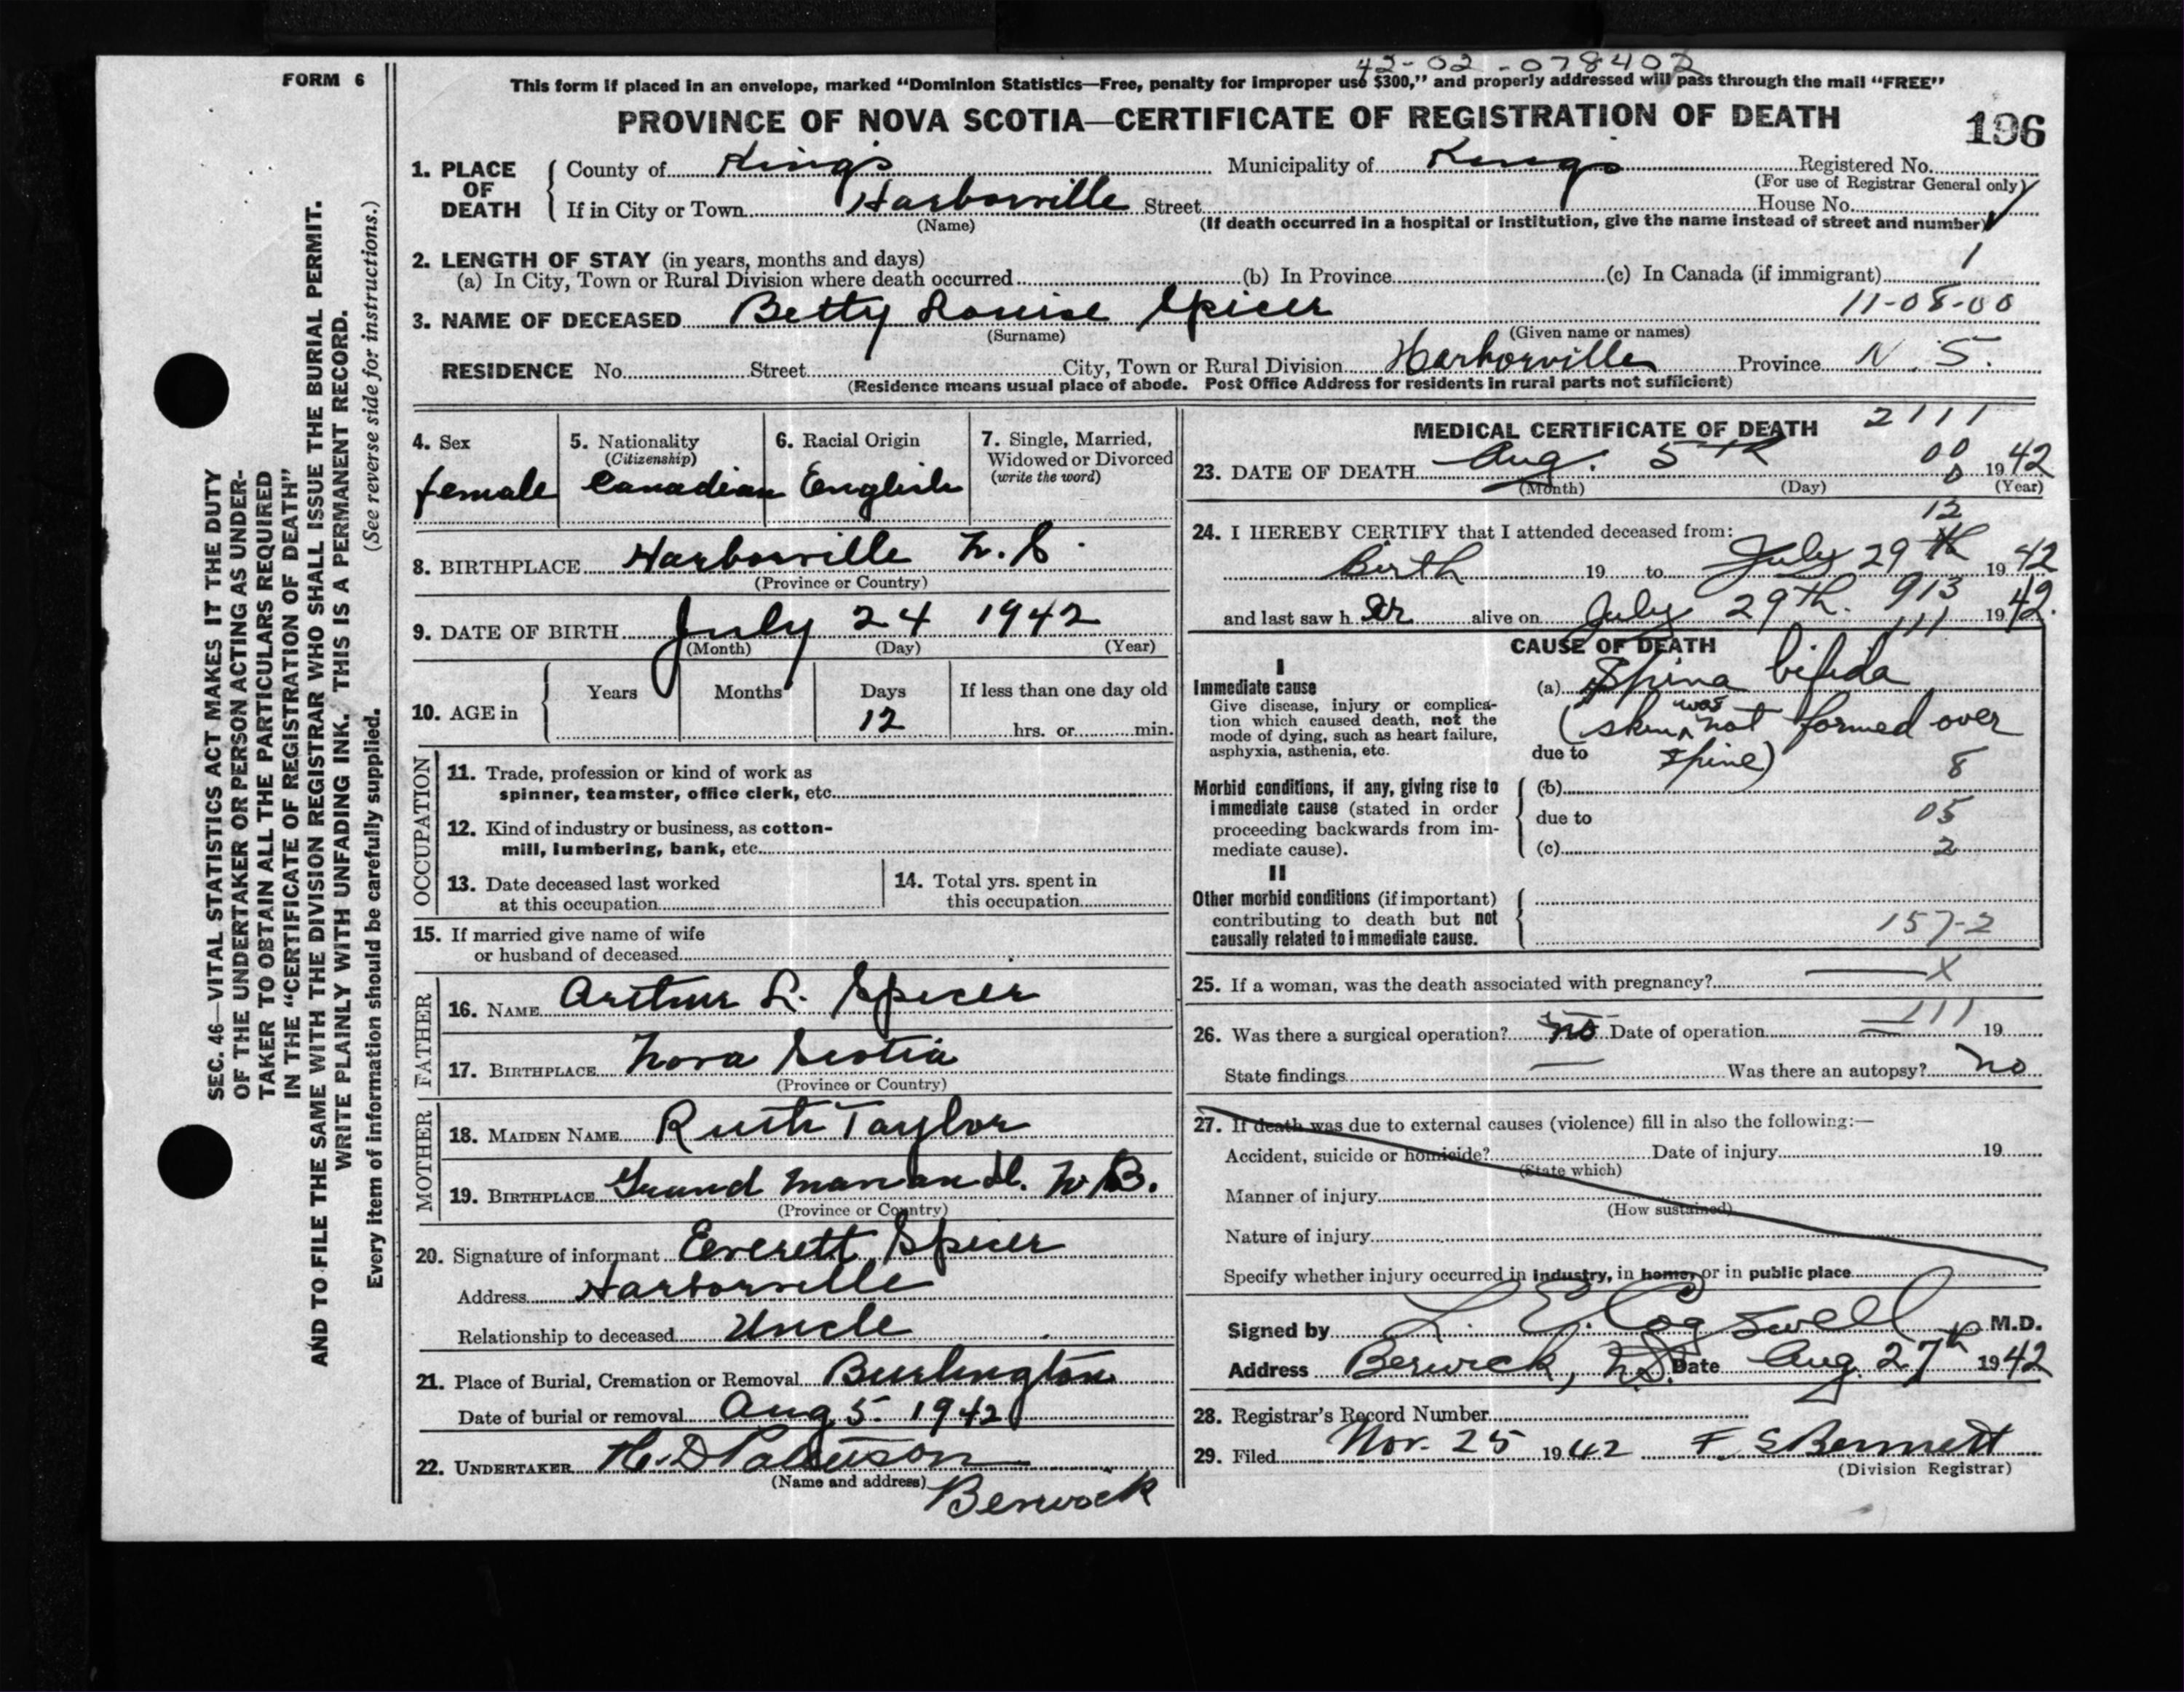 FORM 6
42-02-078402
This form if placed in an envelope, marked "Dominion Statistics—Free, penalty for improper use $300," and properly addressed will pass through the mail "FREE"
PROVINCE OF NOVA SCOTIA—CERTIFICATE OF REGISTRATION OF DEATH
196
1. PLACE OF DEATH
County of Kings Municipality of Kings Registered No.
(For use of Registrar General only)
If in City or Town Harborville Street House No.
(Name) (If death occurred in a hospital or institution, give the name instead of street and number)
2. LENGTH OF STAY (in years, months and days) 1
(a) In City, Town or Rural Division where death occurred (b) In Province (c) In Canada (if immigrant)
3. NAME OF DECEASED Betty Louise Spicer 11-08-00
(Surname) (Given name or names)
RESIDENCE No. Street City, Town or Rural Division Harborville Province N.S.
(Residence means usual place of abode. Post Office Address for residents in rural parts not sufficient)
SEC. 46—VITAL STATISTICS ACT MAKES IT THE DUTY
OF THE UNDERTAKER OR PERSON ACTING AS UNDER-
TAKER TO OBTAIN ALL THE PARTICULARS REQUIRED
IN THE "CERTIFICATE OF REGISTRATION OF DEATH"
AND TO FILE THE SAME WITH THE DIVISION REGISTRAR WHO SHALL ISSUE THE BURIAL PERMIT.
WRITE PLAINLY WITH UNFADING INK. THIS IS A PERMANENT RECORD.
Every item of information should be carefully supplied. (See reverse side for instructions.)
4. Sex
female
5. Nationality
(Citizenship)
Canadian
6. Racial Origin
English
7. Single, Married,
Widowed or Divorced
(write the word)
8. BIRTHPLACE Harborville N.S.
(Province or Country)
9. DATE OF BIRTH July 24 1942
(Month) (Day) (Year)
10. AGE in
Years Months Days If less than one day old
12 hrs. or min.
OCCUPATION
11. Trade, profession or kind of work as
spinner, teamster, office clerk, etc.
12. Kind of industry or business, as cotton-
mill, lumbering, bank, etc.
13. Date deceased last worked
at this occupation
14. Total yrs. spent in
this occupation
15. If married give name of wife
or husband of deceased
FATHER
16. NAME Arthur L. Spicer
17. BIRTHPLACE Nova Scotia
(Province or Country)
MOTHER
18. MAIDEN NAME Ruth Taylor
19. BIRTHPLACE Grand Manan N.B.
(Province or Country)
20. Signature of informant Everett Spicer
Address Harborville
Relationship to deceased Uncle
21. Place of Burial, Cremation or Removal Burlington
Date of burial or removal Aug 5. 1942
22. UNDERTAKER H.D Patterson
(Name and address) Berwick
MEDICAL CERTIFICATE OF DEATH 2111
23. DATE OF DEATH Aug. 5th 00 1942
(Month) (Day) (Year)
12
24. I HEREBY CERTIFY that I attended deceased from:
Birth 19 to July 29th 1942
and last saw h er alive on July 29th. 913 1942.
111
CAUSE OF DEATH
I
Immediate cause
Give disease, injury or complica-
tion which caused death, not the
mode of dying, such as heart failure,
asphyxia, asthenia, etc.
(a) Spina bifida
(skin was not formed over
due to spine)
8
Morbid conditions, if any, giving rise to
immediate cause (stated in order
proceeding backwards from im-
mediate cause).
(b)
due to 05
(c) 2
II
Other morbid conditions (if important)
contributing to death but not
causally related to immediate cause.
157-2
25. If a woman, was the death associated with pregnancy? X
26. Was there a surgical operation? no Date of operation 111 19
State findings — Was there an autopsy? no
27. If death was due to external causes (violence) fill in also the following:—
Accident, suicide or homicide? Date of injury 19
(State which)
Manner of injury
(How sustained)
Nature of injury
Specify whether injury occurred in industry, in home, or in public place
Signed by L. E. Cogswell M.D.
Address Berwick, N.S. Date Aug. 27th 1942
28. Registrar's Record Number
29. Filed Nov. 25 1942 F. S Bennett
(Division Registrar)